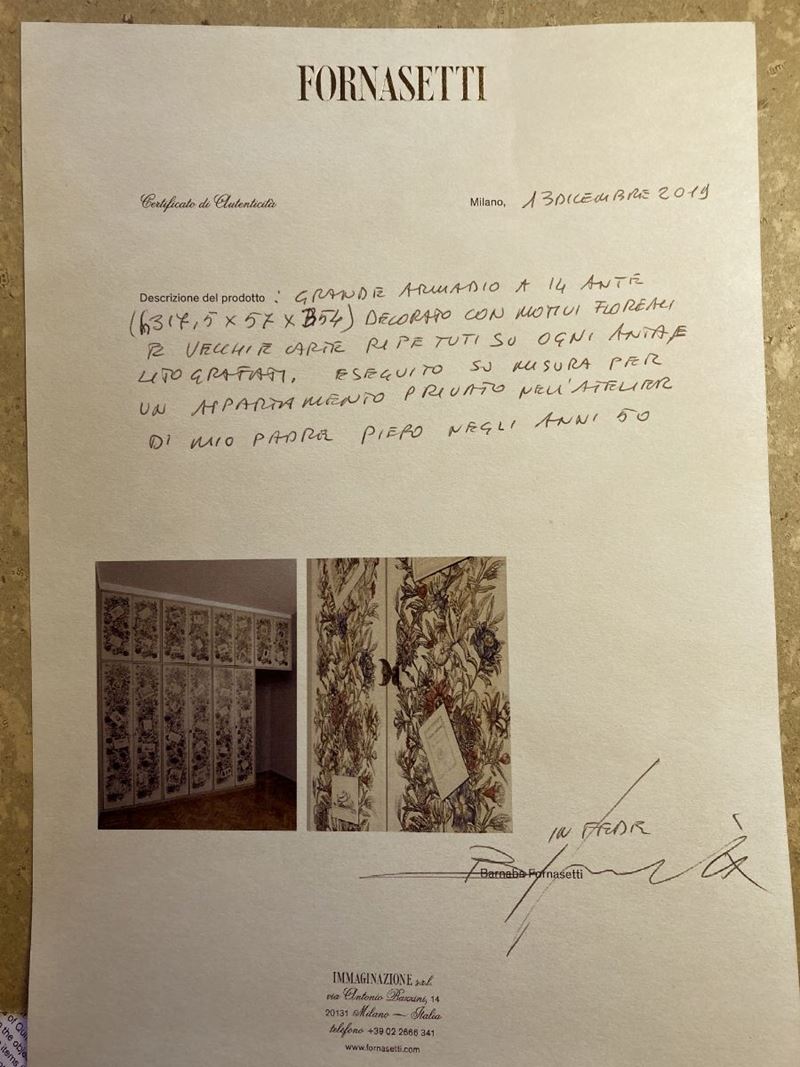 FORNASETTI
Certificato di Autenticità
Milano, 13 DICEMBRE 2019
Descrizione del prodotto : GRANDE ARMADIO A 14 ANTE
(h317,5 x 57 x 354) DECORATO CON MOTIVI FLOREALI
E VECCHIE CARTE RIPETUTI SU OGNI ANTA E
LITOGRAFATI. ESEGUITO SU MISURA PER
UN APPARTAMENTO PRIVATO NELL'ATELIER
DI MIO PADRE PIERO NEGLI ANNI 50
IN FEDE
Barnaba Fornasetti
IMMAGINAZIONE s.r.l.
via Antonio Bazzini, 14
20131 Milano — Italia
telefono +39 02 2666 341
www.fornasetti.com
s of Qu
n the obje
items